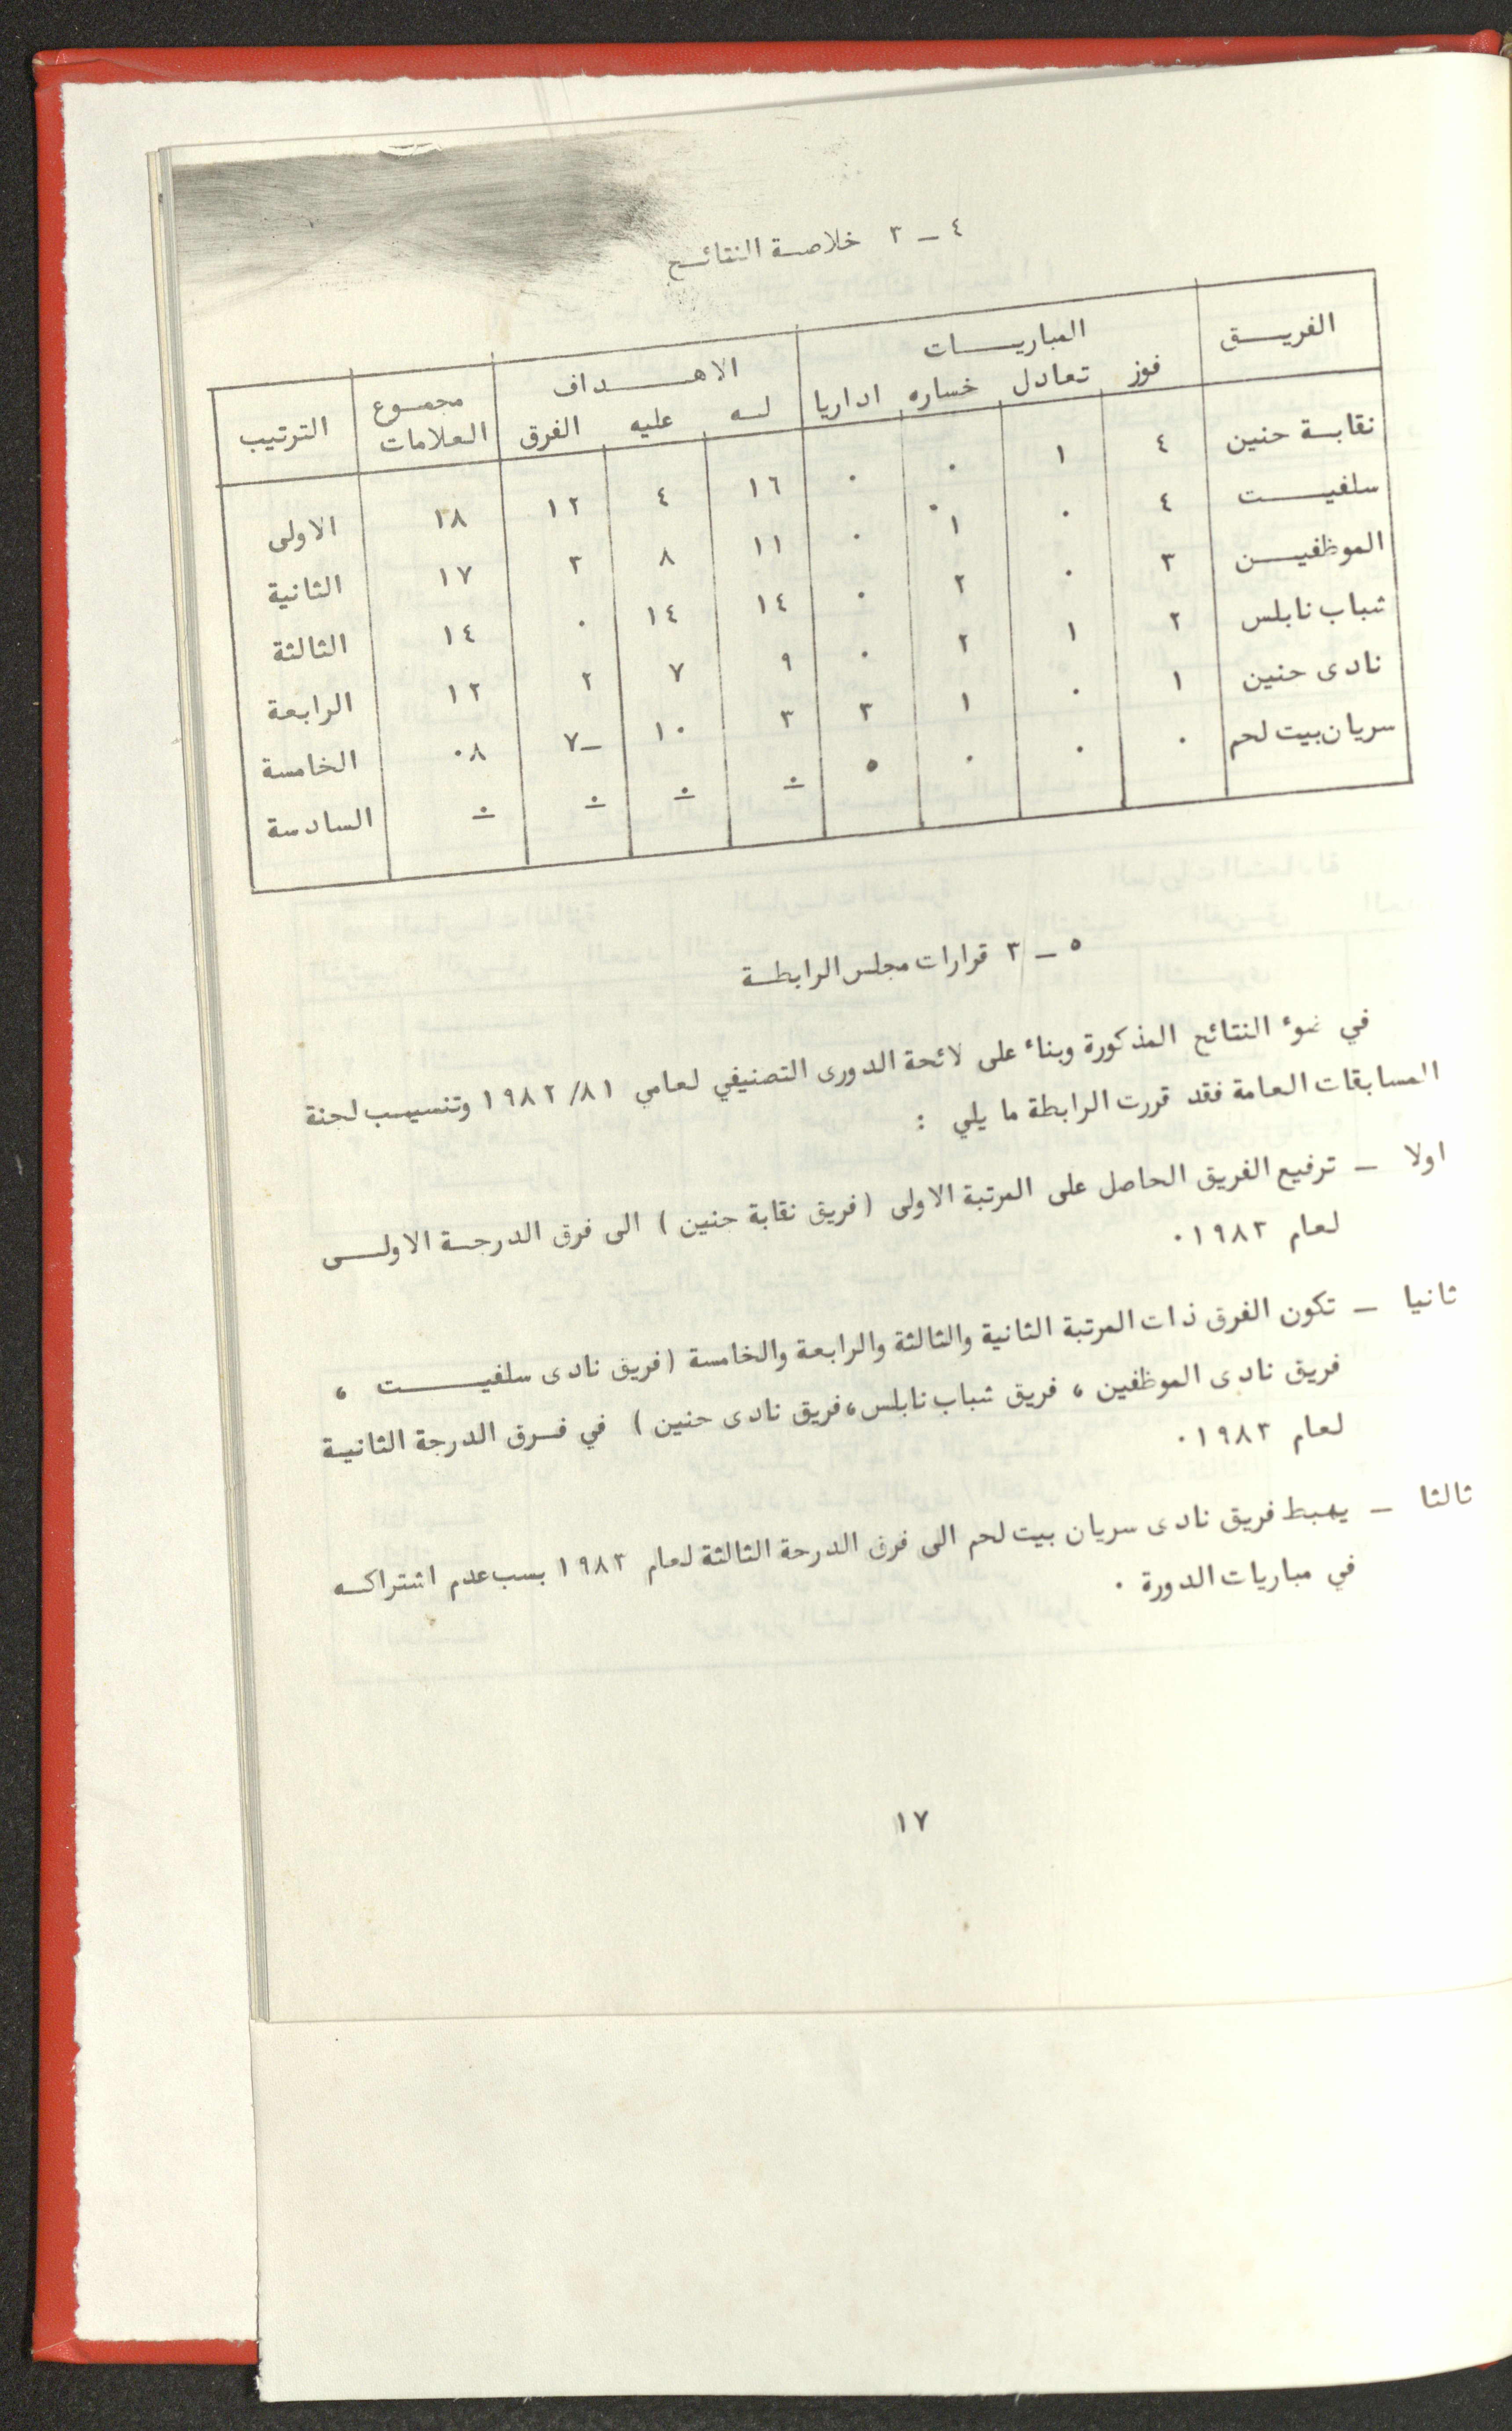 ٤ ــ ٣ خلاصة النتائج
الفريق المباريات الاهداف مجموع العلامات الترتيب
فوز تعادل خساره اداريا له عليه الفرق
نقابة جنين ٤ ١ ٠ ٠ ١٦ ٤ ١٢ ١٨ الاولى
سلفيت ٤ ٠ ١ ٠ ١١ ٨ ٣ ١٧ الثانية
الموظفين ٣ ٠ ٢ ٠ ١٤ ١٤ ٠ ١٤ الثالثة
شباب نابلس ٢ ١ ٢ ٠ ٩ ٧ ٢ ١٢ الرابعة
نادى جنين ١ ٠ ١ ٣ ٣ ١٠ ــ٧ ٠٨ الخامسة
سريان بيت لحم ٠ ٠ ٠ ٥ ٠ ٠ ٠ ٠ السادسة
٥ ــ ٣ قرارات مجلس الرابطة
في ضوء النتائج المذكورة وبناء على لائحة الدورى التصنيفي لعامي ١٩٨٢/٨١ وتنسيب لجنة
المسابقات العامة فقد قررت الرابطة ما يلي :
اولا ــ ترفيع الفريق الحاصل على المرتبة الاولى (فريق نقابة جنين ) الى فرق الدرجة الاولى
لعام ١٩٨٣٠
ثانيا ــ تكون الفرق ذات المرتبة الثانية والثالثة والرابعة والخامسة (فريق نادى سلفيت ،
فريق نادى الموظفين ، فريق شباب نابلس،فريق نادى جنين ) في فرق الدرجة الثانية
لعام ١٩٨٣٠
ثالثا ــ يهبط فريق نادى سريان بيت لحم الى فرق الدرجة الثالثة لعام ١٩٨٣ بسب عدم اشتراكه
في مباريات الدورة ٠
١٧